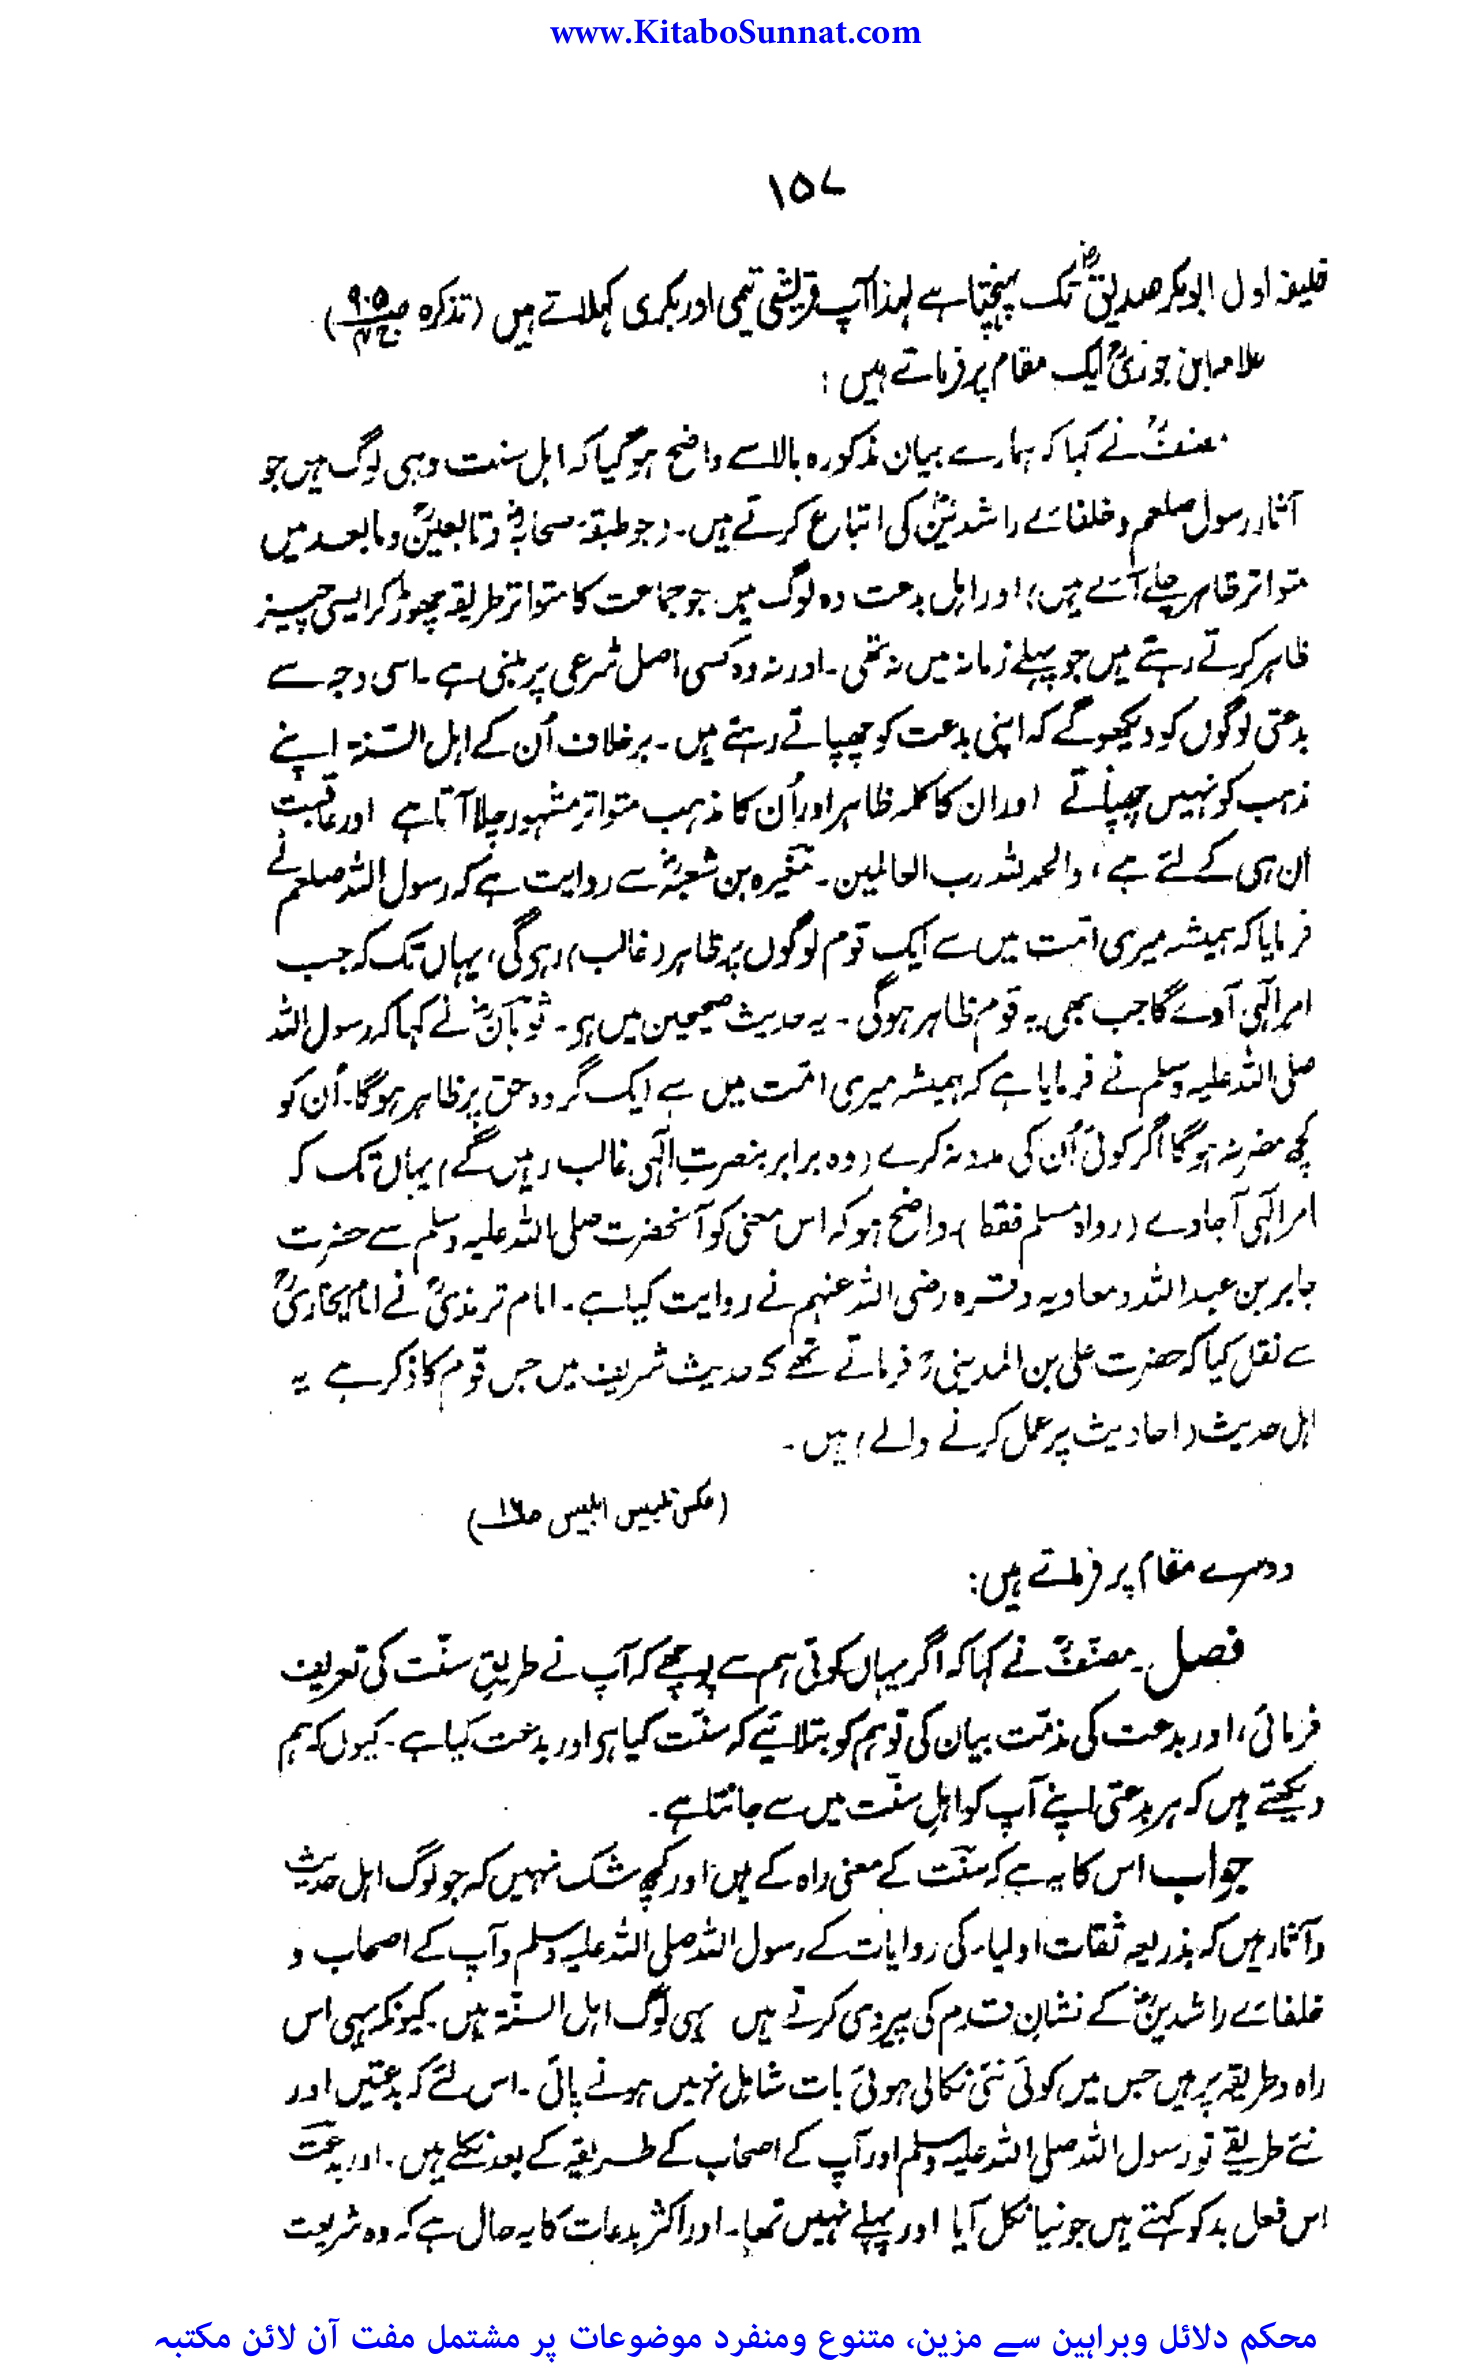 www.KitaboSunnat.com
۱۵۷
خلیفہ اول ابوبکر صدیقؓ تک پہنچتا ہے لہذا آپ قریشی تیمی اور بکری کہلاتے ہیں (تذکرہ ص۹۰۵ ج۴)
علامہ ابن جوزیؒ ایک مقام پر فرماتے ہیں:
مصنفؒ نے کہا کہ ہمارے بیان مذکورہ بالا سے واضح ہو گیا کہ اہل سنت وہی لوگ ہیں جو
آثار رسول صلعم و خلفائے راشدینؓ کی اتباع کرتے ہیں۔ (جو طبقہ صحابہؓ و تابعینؒ و مابعد میں
متواتر ظاہر چلے آتے ہیں) اور اہل بدعت وہ لوگ ہیں جو جماعت کا متواتر طریقہ چھوڑ کر ایسی چیز
ظاہر کرتے رہتے ہیں جو پہلے زمانہ میں نہ تھی۔ اور نہ وہ کسی اصل شرعی پر مبنی ہے۔ اسی وجہ سے
بدعتی لوگوں کو دیکھو گے کہ اپنی بدعت کو چھپاتے رہتے ہیں۔ برخلاف اُن کے اہل السنۃ اپنے
مذہب کو نہیں چھپاتے اور ان کا کلمہ ظاہر اور اُن کا مذہب متواتر مشہور چلا آتا ہے اور عاقبت
ان ہی کے لئے ہے، والحمد للہ رب العالمین۔ مغیرہ بن شعبہؓ سے روایت ہے کہ رسول اللہ صلعم نے
فرمایا کہ ہمیشہ میری امّت میں سے ایک قوم لوگوں پر ظاہر (غالب) رہی گی، یہاں تک کہ جب
امر الٰہی آوے گا جب بھی یہ قوم ظاہر ہو گی۔ یہ حدیث صحیحین میں ہو۔ ثوبانؓ نے کہا کہ رسول اللہ
صلی اللہ علیہ وسلم نے فرمایا ہے کہ ہمیشہ میری امّت میں سے ایک گروہ حق پر ظاہر ہو گا۔ اُن کو
کچھ مضر نہ ہو گا اگر کوئی اُن کی مدد نہ کرے (وہ برابر بنصرتِ الٰہی غالب رہیں گے) یہاں تک کہ
امر الٰہی آ جاوے (رواہ مسلم فقط) واضح ہو کہ اس معنی کو آنحضرت صلی اللہ علیہ وسلم سے حضرت
جابر بن عبداللہ و معاویہ و قرہ رضی اللہ عنہم نے روایت کیا ہے۔ امام ترمذیؒ نے امام بخاریؒ
سے نقل کیا کہ حضرت علی بن المدینیؒ فرماتے تھے کہ حدیث شریف میں جس قوم کا ذکر ہے یہ
اہل حدیث (احادیث پر عمل کرنے والے) ہیں۔
(عکسی تلبیس ابلیس ص۱۶)
دوسرے مقام پر فرماتے ہیں:
فصل۔ مصنّفؒ نے کہا کہ اگر یہاں کوئی ہم سے پوچھے کہ آپ نے طریقِ سنّت کی تعریف
فرمائی، اور بدعت کی مذمّت بیان کی تو ہم کو بتلائیے کہ سنّت کیا ہو اور بدعت کیا ہے۔ کیوں کہ ہم
دیکھتے ہیں کہ ہر بدعتی اپنے آپ کو اہلِ سنّت میں سے جانتا ہے۔
جواب اس کا یہ ہے کہ سنّت کے معنی راہ کے ہیں اور کچھ شک نہیں کہ جو لوگ اہل حدیث
و آثار ہیں کہ بذریعہ ثقات اولیاء کی روایات کے رسول اللہ صلی اللہ علیہ وسلم و آپ کے اصحاب و
خلفائے راشدینؓ کے نشانِ قدم کی پیروی کرتے ہیں یہی لوگ اہل السنّۃ ہیں کیونکہ یہی اس
راہ و طریقہ پر ہیں جس میں کوئی نئی نکالی ہوئی بات شامل نہیں ہونے پائی۔ اس لئے کہ بدعتیں اور
نئے طریقے تو رسول اللہ صلی اللہ علیہ وسلم اور آپ کے اصحاب کے طریقہ کے بعد نکلے ہیں۔ اور بدعت
اس فعل بد کو کہتے ہیں جو نیا نکل آیا اور پہلے نہیں تھا۔ اور اکثر بدعات کا یہ حال ہے کہ وہ شریعت
محکم دلائل وبراہین سے مزین، متنوع ومنفرد موضوعات پر مشتمل مفت آن لائن مکتبہ